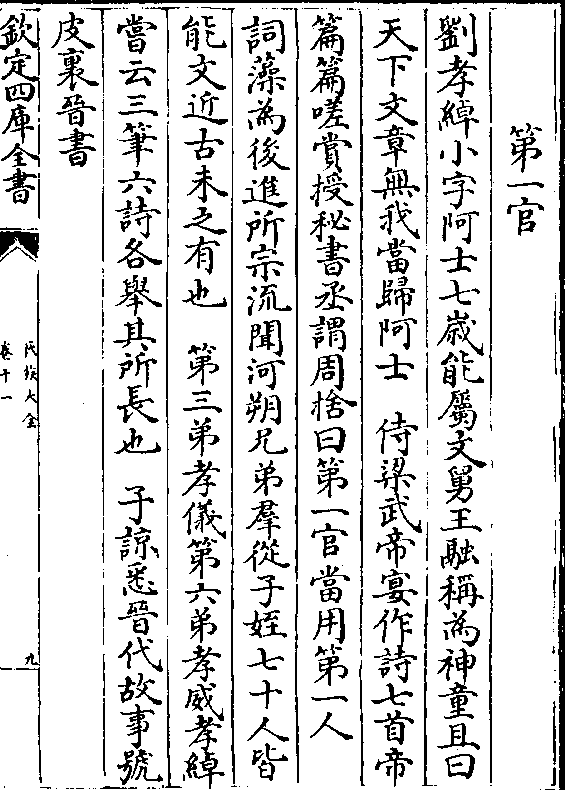 第一官
劉孝綽小字阿士七歲能屬文舅王融稱為神童且曰
天下文章無我當歸阿士　侍梁武帝宴作詩七首帝
篇篇嗟賞授秘書丞謂周捨曰第一官當用第一人
詞藻為後進所宗流聞河朔兄弟羣從子姪七十人皆
能文近古未之有也　第三弟孝儀第六弟孝威孝綽
嘗云三筆六詩各舉其所長也　子諒悉晉代故事號
皮裏晉書
欽定四庫全書
氏族大全
卷十一
九